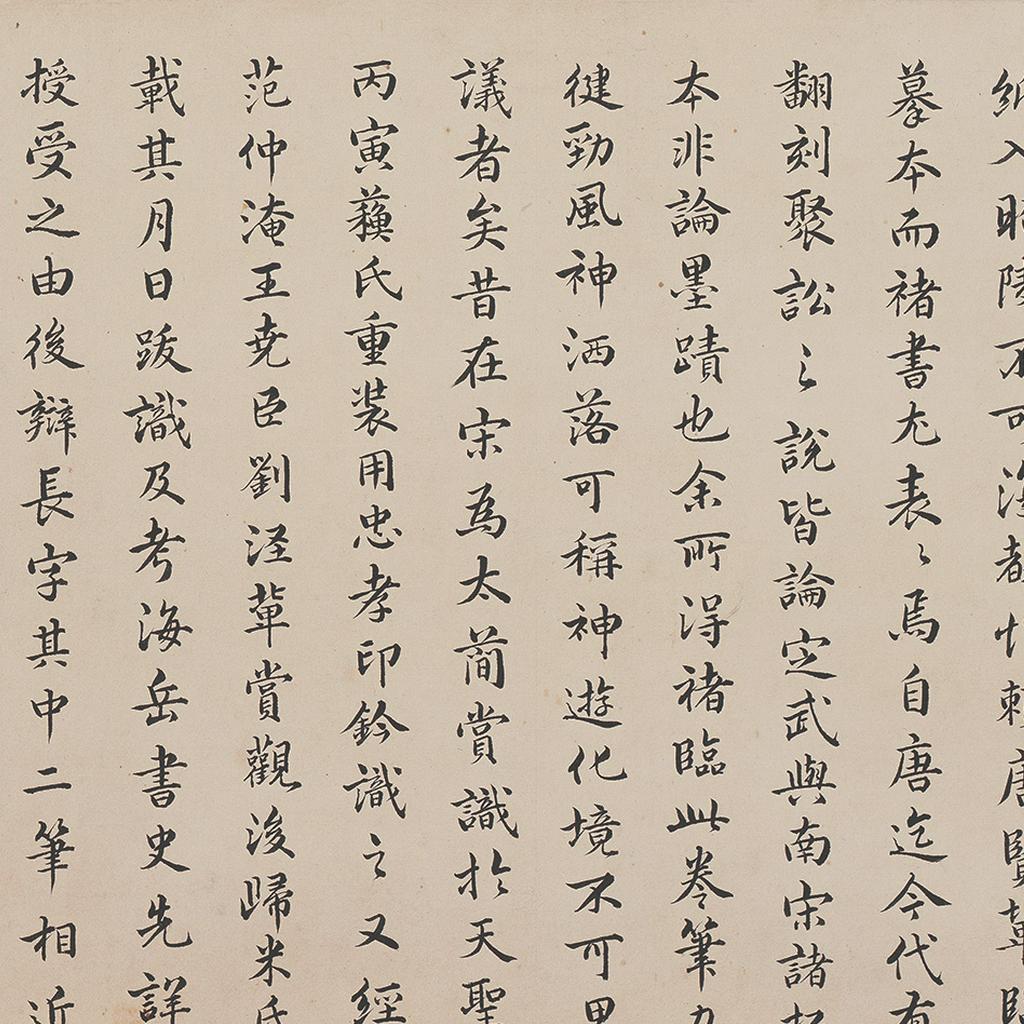 入昭陵不可 都 賴唐賢輩臨
摹本而褚書尤表〻焉自唐迄今代有
翻刻聚訟〻說皆論定武與南宋諸拓
本非論墨蹟也余所得褚臨此卷筆力
健勁風神洒落可稱神遊化境不可思
議者矣昔在宋為太簡賞識於天聖
丙寅蘇氏重裝用忠孝印鈐識之又經
范仲淹王堯臣劉涇輩賞觀後歸米氏
載其月日跋識及考海岳書史先詳
授受之由後辯長字其中二筆相近